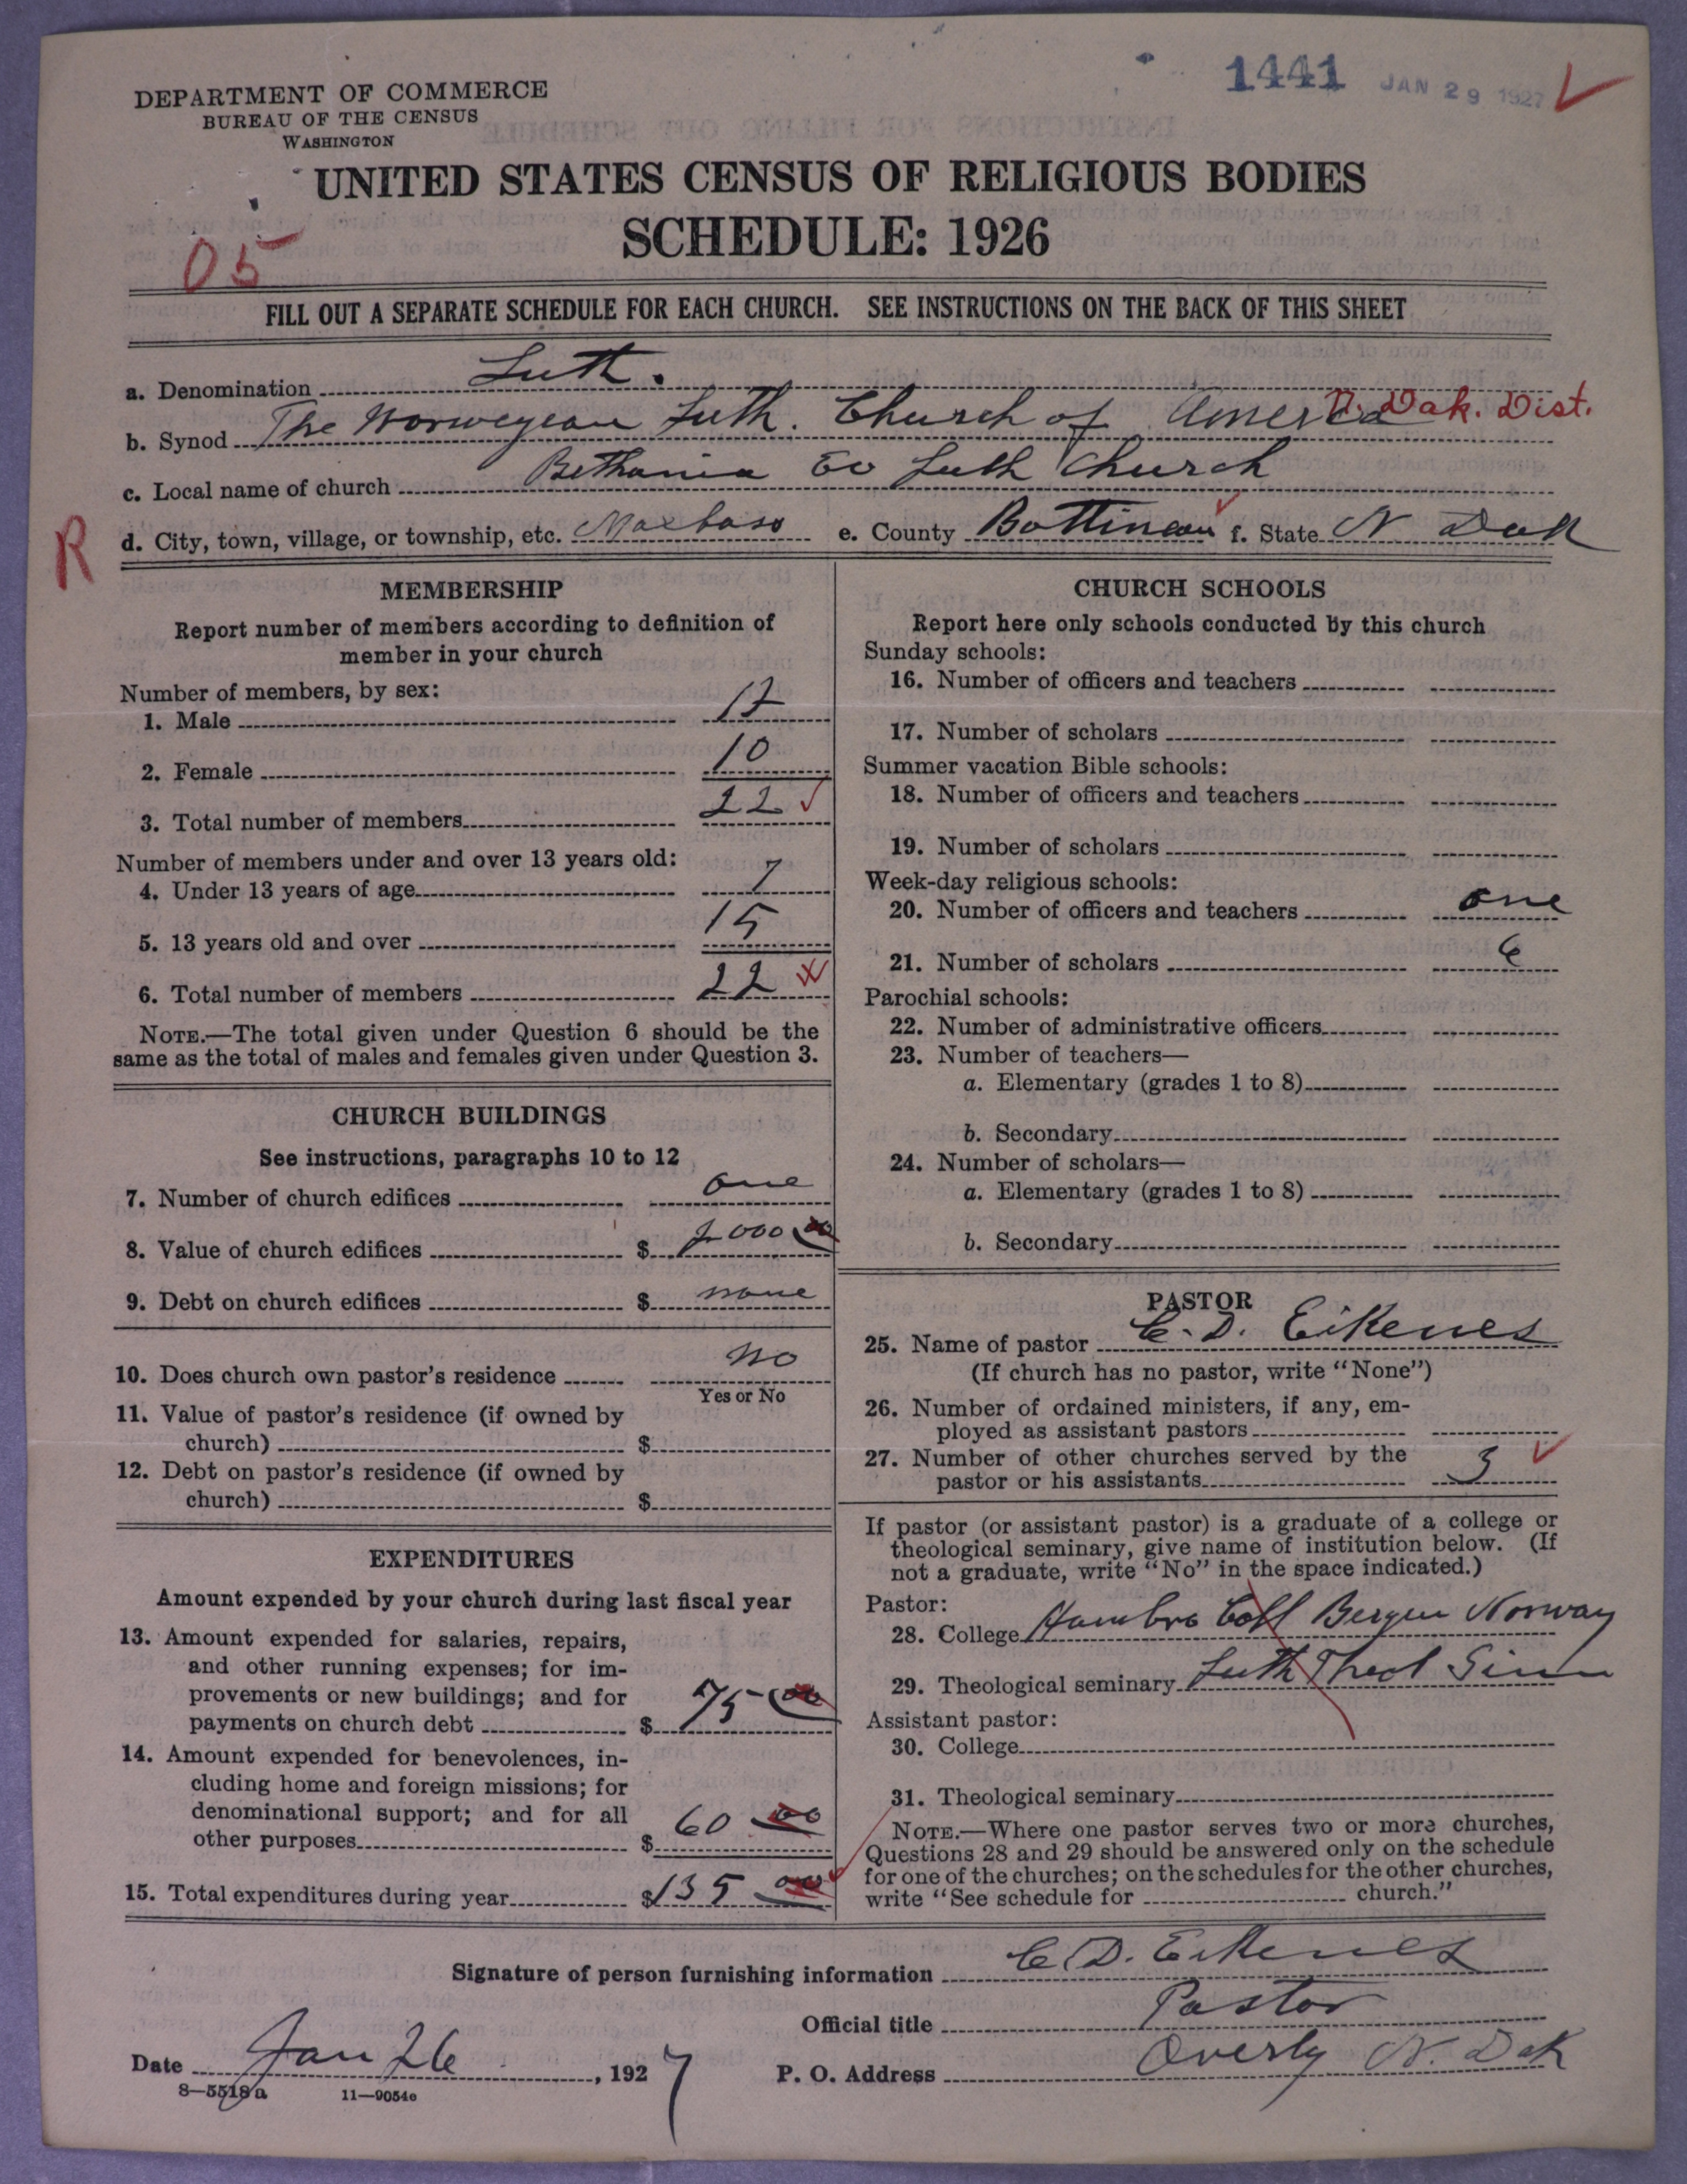 1441 JAN 29 1927
DEPARTMENT OF COMMERCE
BUREAU OF THE CENSUS
WASHINGTON
UNITED STATES CENSUS OF RELIGIOUS BODIES
SCHEDULE: 1926
05
FILL OUT A SEPARATE SCHEDULE FOR EACH CHURCH. SEE INSTRUCTIONS ON THE BACK OF THIS SHEET
a. Denomination Luth.
b. Synod The Norwegean Luth. Church of America N. Dak. Dist.
c. Local name of church Bethania Ev Luth Church
R d. City, town, village, or township, etc. Maxbass e. County Bottineau f. State N Dak
MEMBERSHIP
Report number of members according to definition of
member in your church
Number of members, by sex:
1. Male 12
2. Female 10
3. Total number of members 22
Number of members under and over 13 years old:
4. Under 13 years of age 7
5. 13 years old and over 15
6. Total number of members 22
NOTE.—The total given under Question 6 should be the
same as the total of males and females given under Question 3.
CHURCH BUILDINGS
See instructions, paragraphs 10 to 12
7. Number of church edifices one
8. Value of church edifices $ 2000 00
9. Debt on church edifices $ none
10. Does church own pastor's residence no
Yes or No
11. Value of pastor's residence (if owned by
church) $
12. Debt on pastor's residence (if owned by
church) $
EXPENDITURES
Amount expended by your church during last fiscal year
13. Amount expended for salaries, repairs,
and other running expenses; for im-
provements or new buildings; and for
payments on church debt $ 75 00
14. Amount expended for benevolences, in-
cluding home and foreign missions; for
denominational support; and for all
other purposes $ 60 00
15. Total expenditures during year $ 135 00
CHURCH SCHOOLS
Report here only schools conducted by this church
Sunday schools:
16. Number of officers and teachers
17. Number of scholars
Summer vacation Bible schools:
18. Number of officers and teachers
19. Number of scholars
Week-day religious schools:
20. Number of officers and teachers one
21. Number of scholars 6
Parochial schools:
22. Number of administrative officers
23. Number of teachers—
a. Elementary (grades 1 to 8)
b. Secondary
24. Number of scholars—
a. Elementary (grades 1 to 8)
b. Secondary
PASTOR
25. Name of pastor C. D. Eikenes
(If church has no pastor, write "None")
26. Number of ordained ministers, if any, em-
ployed as assistant pastors
27. Number of other churches served by the
pastor or his assistants 3
If pastor (or assistant pastor) is a graduate of a college or
theological seminary, give name of institution below. (If
not a graduate, write "No" in the space indicated.)
Pastor:
28. College Hambro Coll Bergen Norway
29. Theological seminary Luth Theol Sem
Assistant pastor:
30. College
31. Theological seminary
NOTE.—Where one pastor serves two or more churches,
Questions 28 and 29 should be answered only on the schedule
for one of the churches; on the schedules for the other churches,
write "See schedule for church."
Signature of person furnishing information C. D. Eikenes
Official title Pastor
Date Jan 26, 1927 P. O. Address Overly N. Dak
8—5518a 11—9054e